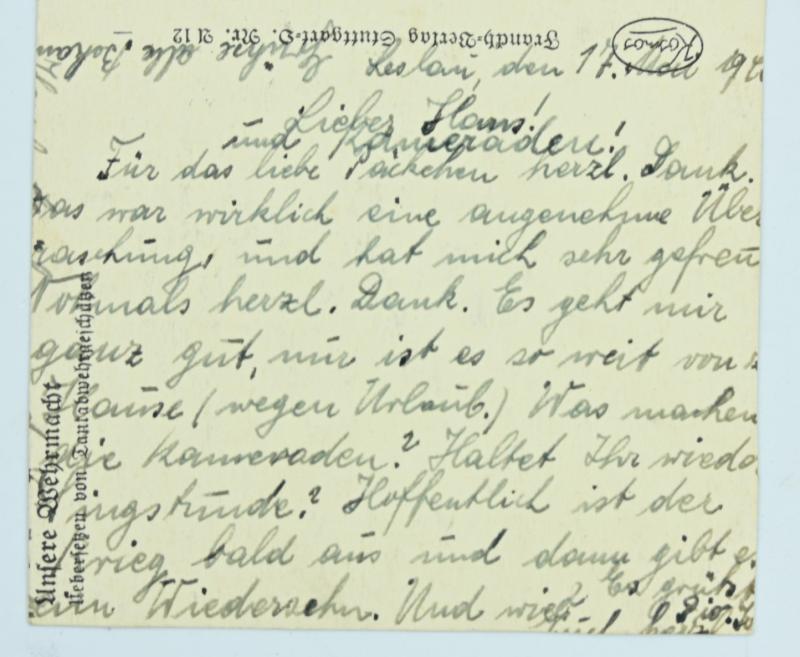 Franckh-Verlag Stuttgart-O. Nr. A 12
Kosmos
Grüße alle Bekan
Leslau, den 17. Mai 194
Lieber Hans!
und Kameraden!
Für das liebe Päckchen herzl. Dank.
Das war wirklich eine angenehme Über
raschung, und hat mich sehr gefreu
Vormals herzl. Dank. Es geht mir
ganz gut, nur ist es so weit von z
Hause (wegen Urlaub.) Was machen
die Kameraden? Haltet Ihr wiede
ingstunde? Hoffentlich ist der
Krieg bald aus und dann gibt e
ein Wiedersehn. Und wie?
Es grüßt
Unsere Wehrmacht
Uebersetzen von Tankabwehrgeschützen